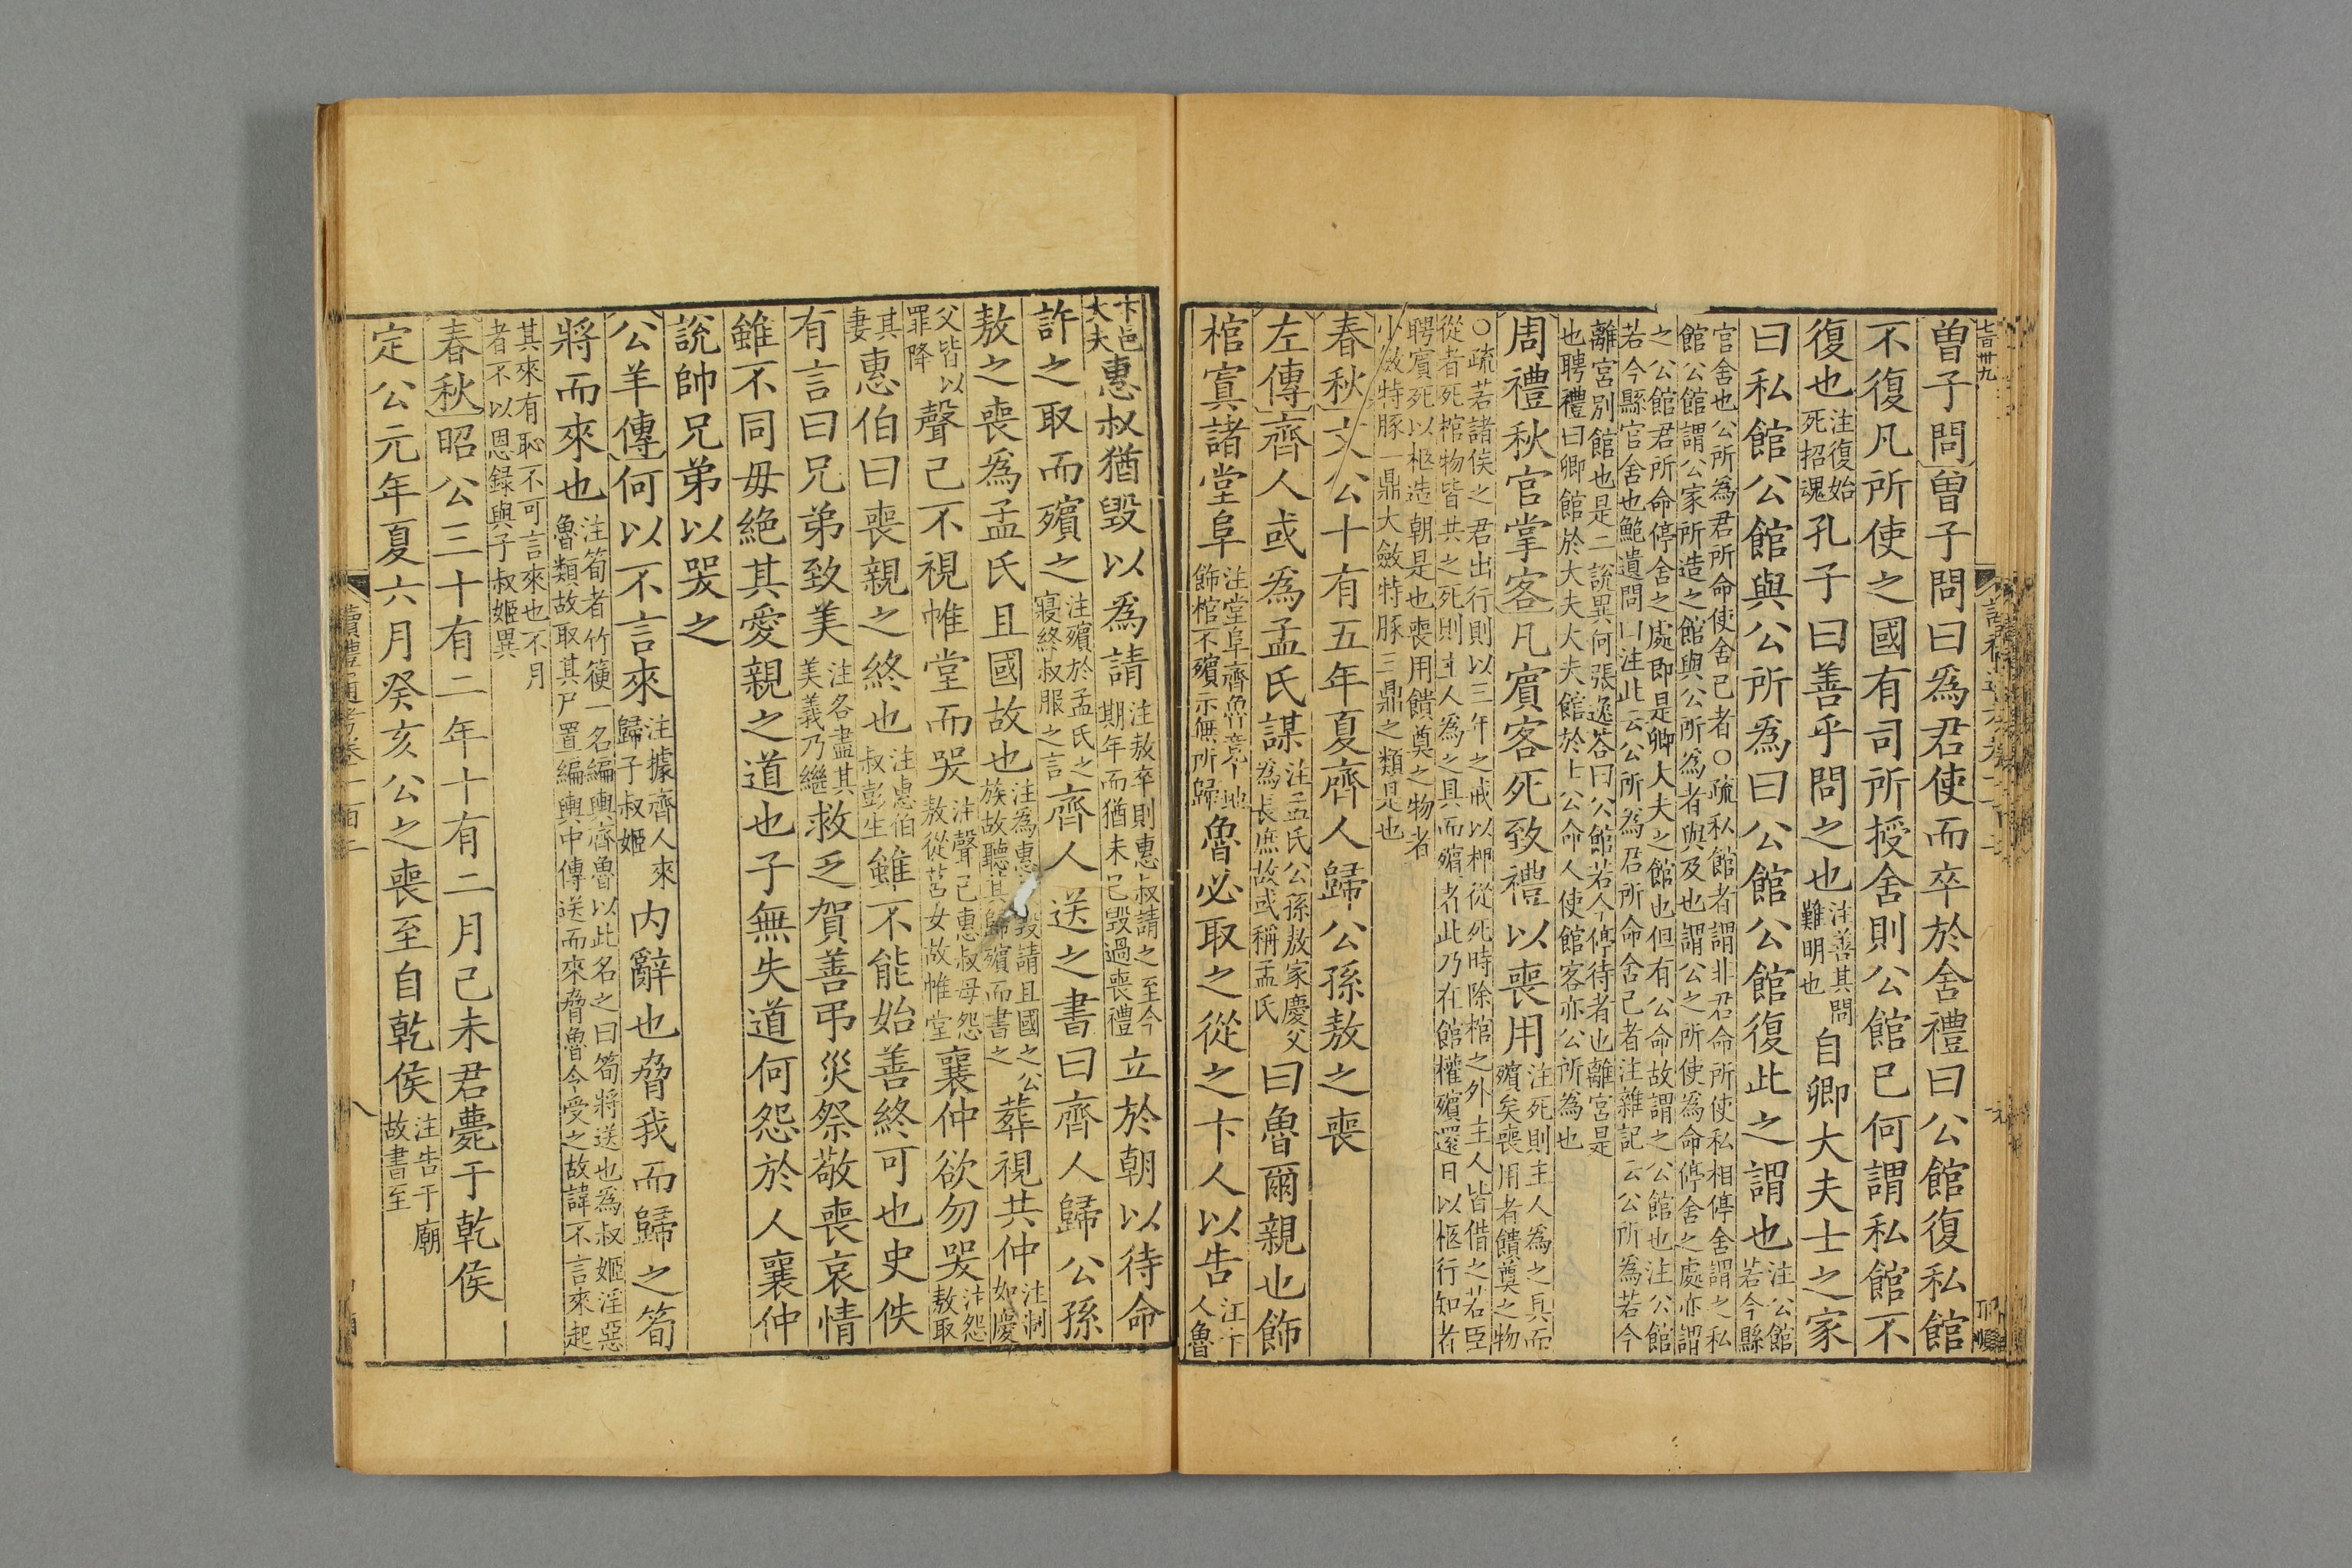 曽子問曽子問曰爲君使而卒於舍禮曰公館復私館
不復凡所使之國有司所授舍則公館已何謂私館不
復也注復始死招魂孔子曰善乎問之也注善其問難明也自卿大夫士之家
曰私館公館與公所爲曰公館公館復此之謂也注公館若今縣
官舍也公所為君所命使舍己者○疏私館者謂非君命所使私相停舍謂之私
館公館謂公家所造之館與公所為者與及也謂公之所使為命停舍之處亦謂
之公館君所命停舍之處即是卿大夫之館也但有公命故謂之公館也注公館
若今縣官舍也鮑遺問曰注此云公所為君所命舍己者注雜記云公所為若今
離宮別館也是二說異何張逸荅曰公館若今停待者也離宮是
也聘禮曰卿館於大夫大夫館於士公命人使館客亦公所為也
周禮秋官掌客凡賓客死致禮以喪用注死則主人為之具而殯矣喪用者饋奠之物
○疏若諸侯之君出行則以三年之戒以椑從死時除棺之外主人皆借之若臣
從者死棺物皆共之死則主人為之具而殯者此乃在館權殯還日以柩行知者
聘賓死以柩造朝是也喪用饋奠之物者
小斂特豚一鼎大斂特豚三鼎之類是也
春秋文公十有五年夏齊人歸公孫敖之喪
左傳齊人或爲孟氏謀注孟氏公孫敖家慶父為長庶故或稱孟氏曰魯爾親也飾
棺寘諸堂阜注堂阜齊魯竟上地飾棺不殯示無所歸魯必取之從之卞人以告注卞人魯
卞邑大夫惠叔猶毀以爲請注敖卒則惠叔請之至今期年而猶未已毀過喪禮立於朝以待命
許之取而殯之注殯於孟氏之寢終叔服之言齊人送之書曰齊人歸公孫
敖之喪爲孟氏且國故也注為惠毀請且國之公族故聽其歸殯而書之葬視共仲注制如慶
父皆以罪降聲己不視帷堂而哭注聲己惠叔母怨敖從莒女故帷堂襄仲欲勿哭注怨敖取
其妻惠伯曰喪親之終也注惠伯叔彭生雖不能始善終可也史佚
有言曰兄弟致美注各盡其美義乃繼救乏賀善弔災祭敬喪哀情
雖不同毋絕其愛親之道也子無失道何怨於人襄仲
說帥兄弟以哭之
公羊傳何以不言來注據齊人來歸子叔姬内辭也脅我而歸之筍
將而來也注筍者竹箯一名編輿齊魯以此名之曰筍將送也爲叔姬淫惡魯類故取其尸置編輿中傳送而來脅魯今受之故諱不言來起
其來有恥不可言來也不月
者不以恩録與子叔姬異
春秋昭公三十有二年十有二月己未君薨于乾侯
定公元年夏六月癸亥公之喪至自乾侯注告于廟故書至
讀禮通考卷一百十
八